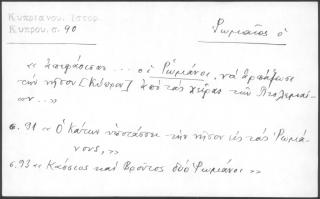 Κυπριανού. Ιστορ.
Κύπρου. σ. 90
Ρωμαῖος ὁ
« ἀπεφάσισαν... οἱ Ῥωμάνοι, νὰ ἁρπάξωσι
τὴν νῆσον [Κύπρον] ἀπὸ τὰς χεῖρας τῶν Πτολεμαί-
ων..»
σ. 91 « Ὁ Κάτων ὑποτάσσει τὴν νῆσον εἰς τοὺς Ῥωμά-
νους, »
σ. 93 « Κάσσιος καὶ Βροῦτος δύο Ῥωμάνοι »